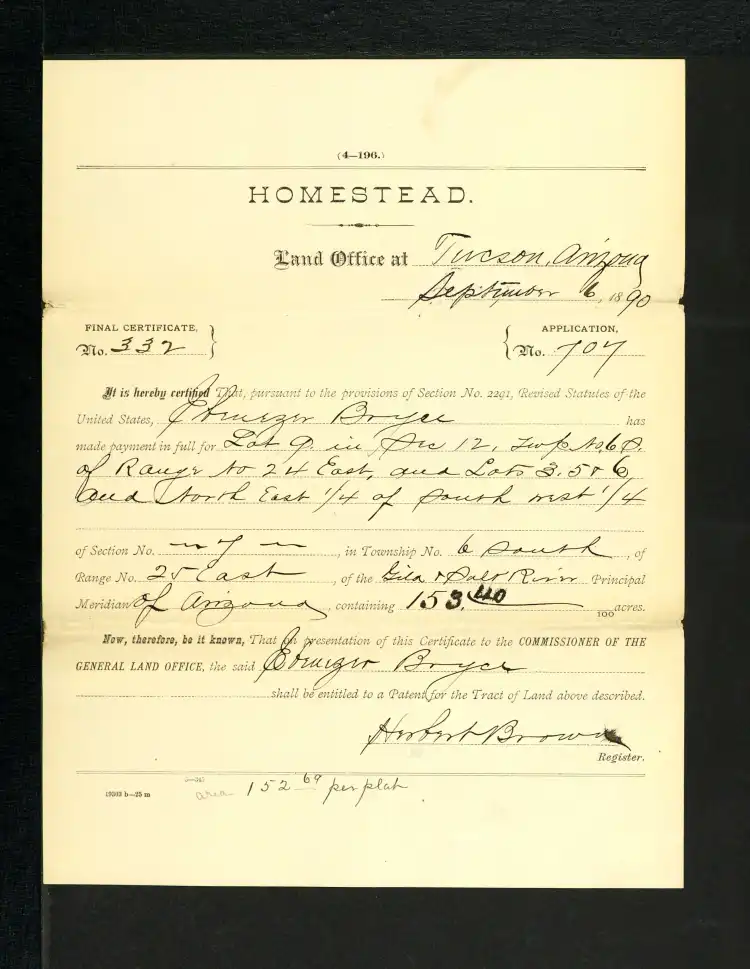 (4—196.)
HOMESTEAD.
Land Office at Tucson, Arizona
September 6, 1890
FINAL CERTIFICATE, No. 332
APPLICATION, No. 707
It is hereby certified That, pursuant to the provisions of Section No. 2291, Revised Statutes of the
United States, Ebenezer Bryce has
made payment in full for Lot 9. in Sec 12, Twp No, 6 S.
of Range No 24 East, and Lots 3. 5 & 6,
and North East 1/4 of South west 1/4
of Section No. — 7 —, in Township No. 6 South, of
Range No. 25 East, of the Gila & Salt River Principal
Meridian of Arizona, containing 153.40/100 acres.
Now, therefore, be it known, That on presentation of this Certificate to the COMMISSIONER OF THE
GENERAL LAND OFFICE, the said Ebenezer Bryce
shall be entitled to a Patent for the Tract of Land above described.
Herbert Brown
Register.
19303 b—25 m
area 152 69 per plat